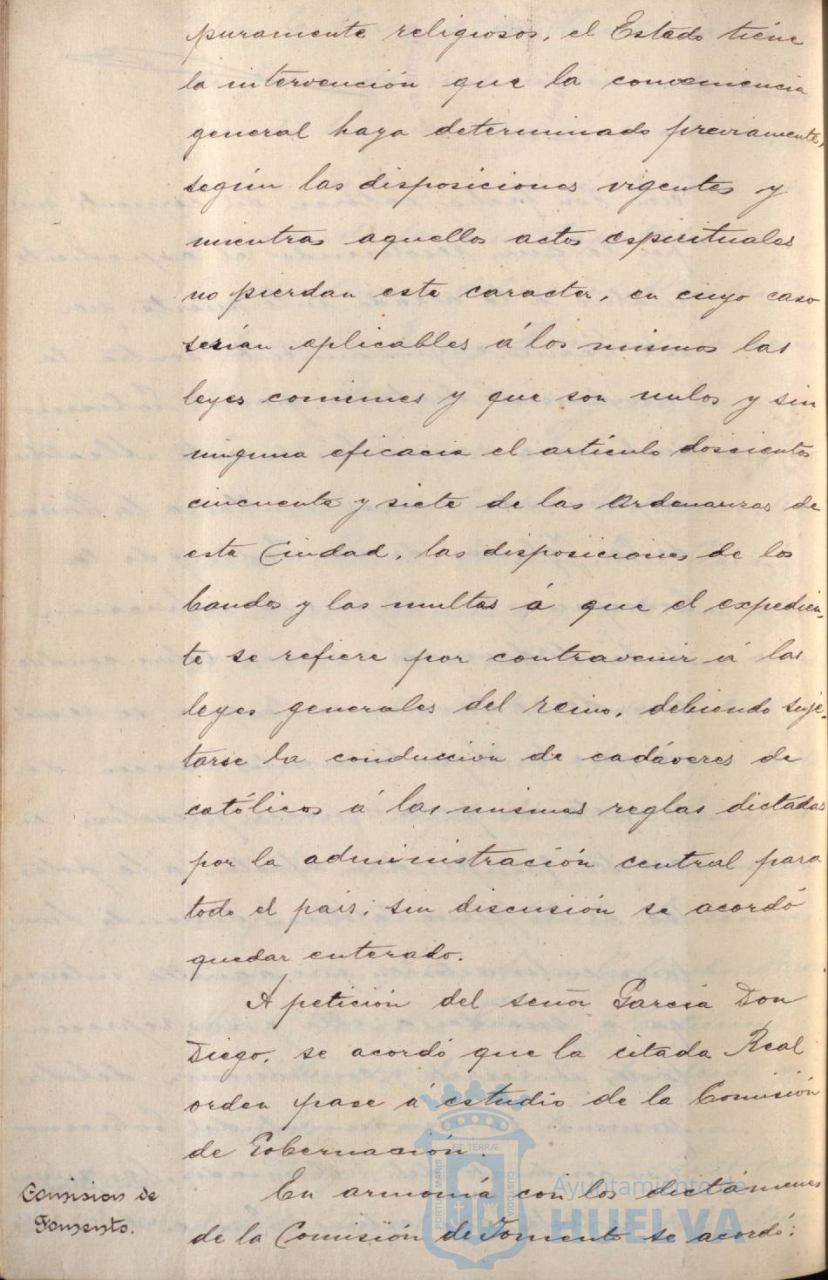 puramente religiosos, el Estado tiene
la intervención que la conveniencia
general haya determinado previamente,
según las disposiciones vigentes y
mientras aquellos actos espirituales
no pierdan este caracter, en cuyo caso
serían aplicables á los mismos las
leyes comunes y que son nulos y sin
ninguna eficacia el artículo doscientos
cincuenta y siete de las Ordenanzas de
esta Ciudad, las disposiciones de los
bandos y las multas á que el expedien-
te se refiere por contravenir á las
leyes generales del reino, debiendo suje-
tarse la conducción de cadáveres de
católicos á las mismas reglas dictadas
por la administración central para
todo el pais; sin discusión se acordó
quedar enterado.
A petición del señor García Don
Diego, se acordó que la citada Real
orden pase á estudio de la Comisión
de Gobernación.
Comision de
Fomento.
En armonía con los dictámenes
de la Comisión de Fomento se acordó:
Ayuntamiento de
HUELVA
PORTUS MARIS
ET TERRÆ
CUSTODIA